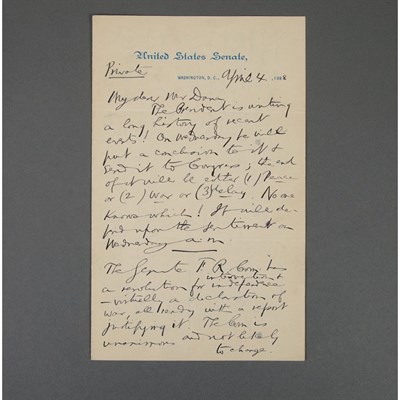 United States Senate,
Private
WASHINGTON, D. C., April 4, 1898
My dear Mr Dana
The President is writing
a long history of recent
events! On Wednesday he will
put a conclusion to it &
send it to Congress; the end
of it will be either (1) Peace
or (2) War or (3) delay. No one
knows which! It will de-
pend upon the sentiment on
Wednesday a m
The Senate F R Com has
a resolution for intervention &
independence
- virtually a declaration of
war, all ready with a report
justifying it. The Com is
unanimous and not likely
to change.